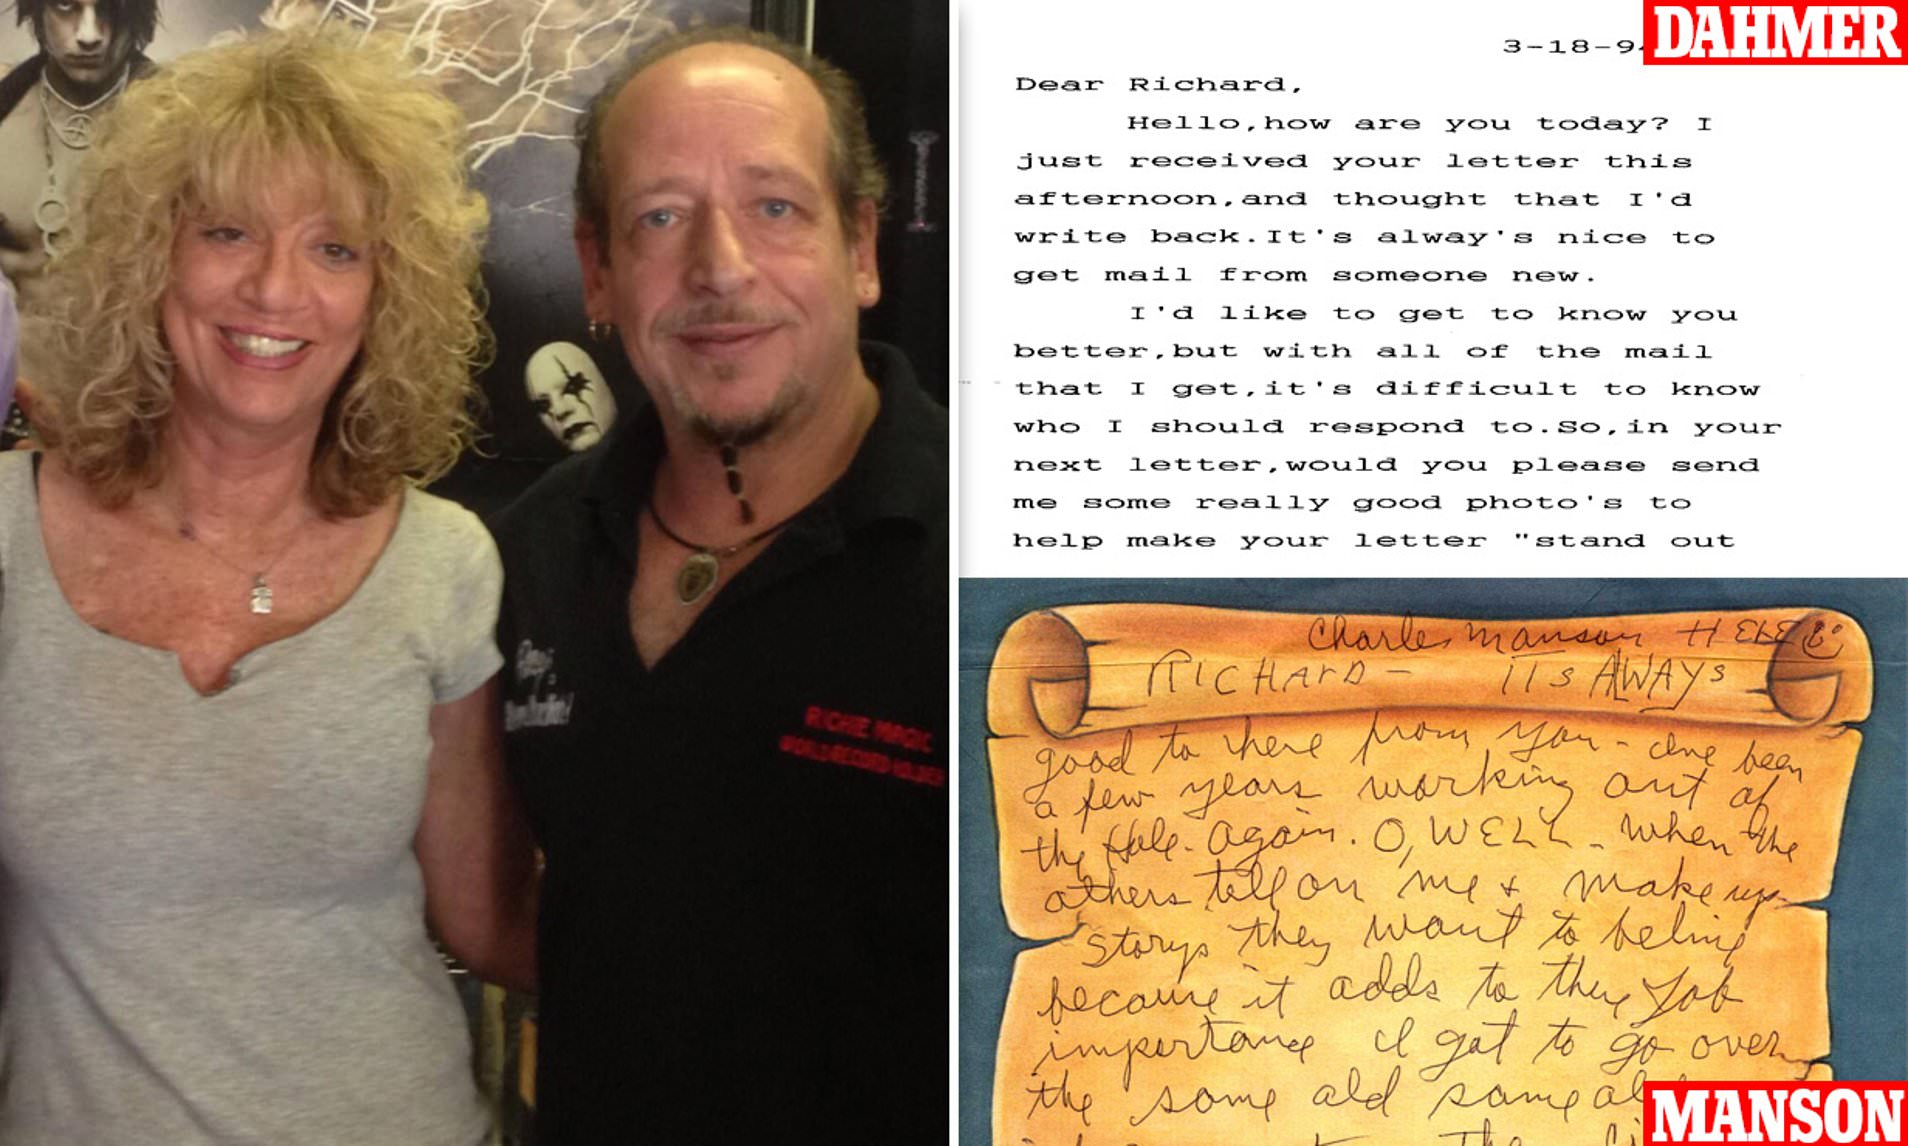 RICHIE MAGIC
WORLD RECORD HOLDER
DAHMER
3-18-9
Dear Richard,
Hello,how are you today? I
just received your letter this
afternoon,and thought that I'd
write back.It's alway's nice to
get mail from someone new.
I'd like to get to know you
better,but with all of the mail
that I get,it's difficult to know
who I should respond to.So,in your
next letter,would you please send
me some really good photo's to
help make your letter "stand out
Charles Manson HERE
RICHARD - ITS ALWAYS
good to here from you - ive been
a few years working out of
the Hole. Again. O, WELL - when the
others tell on me + make up
storys they want to belive
because it adds to they Job
importance I got to go over
the some old same ol
MANSON